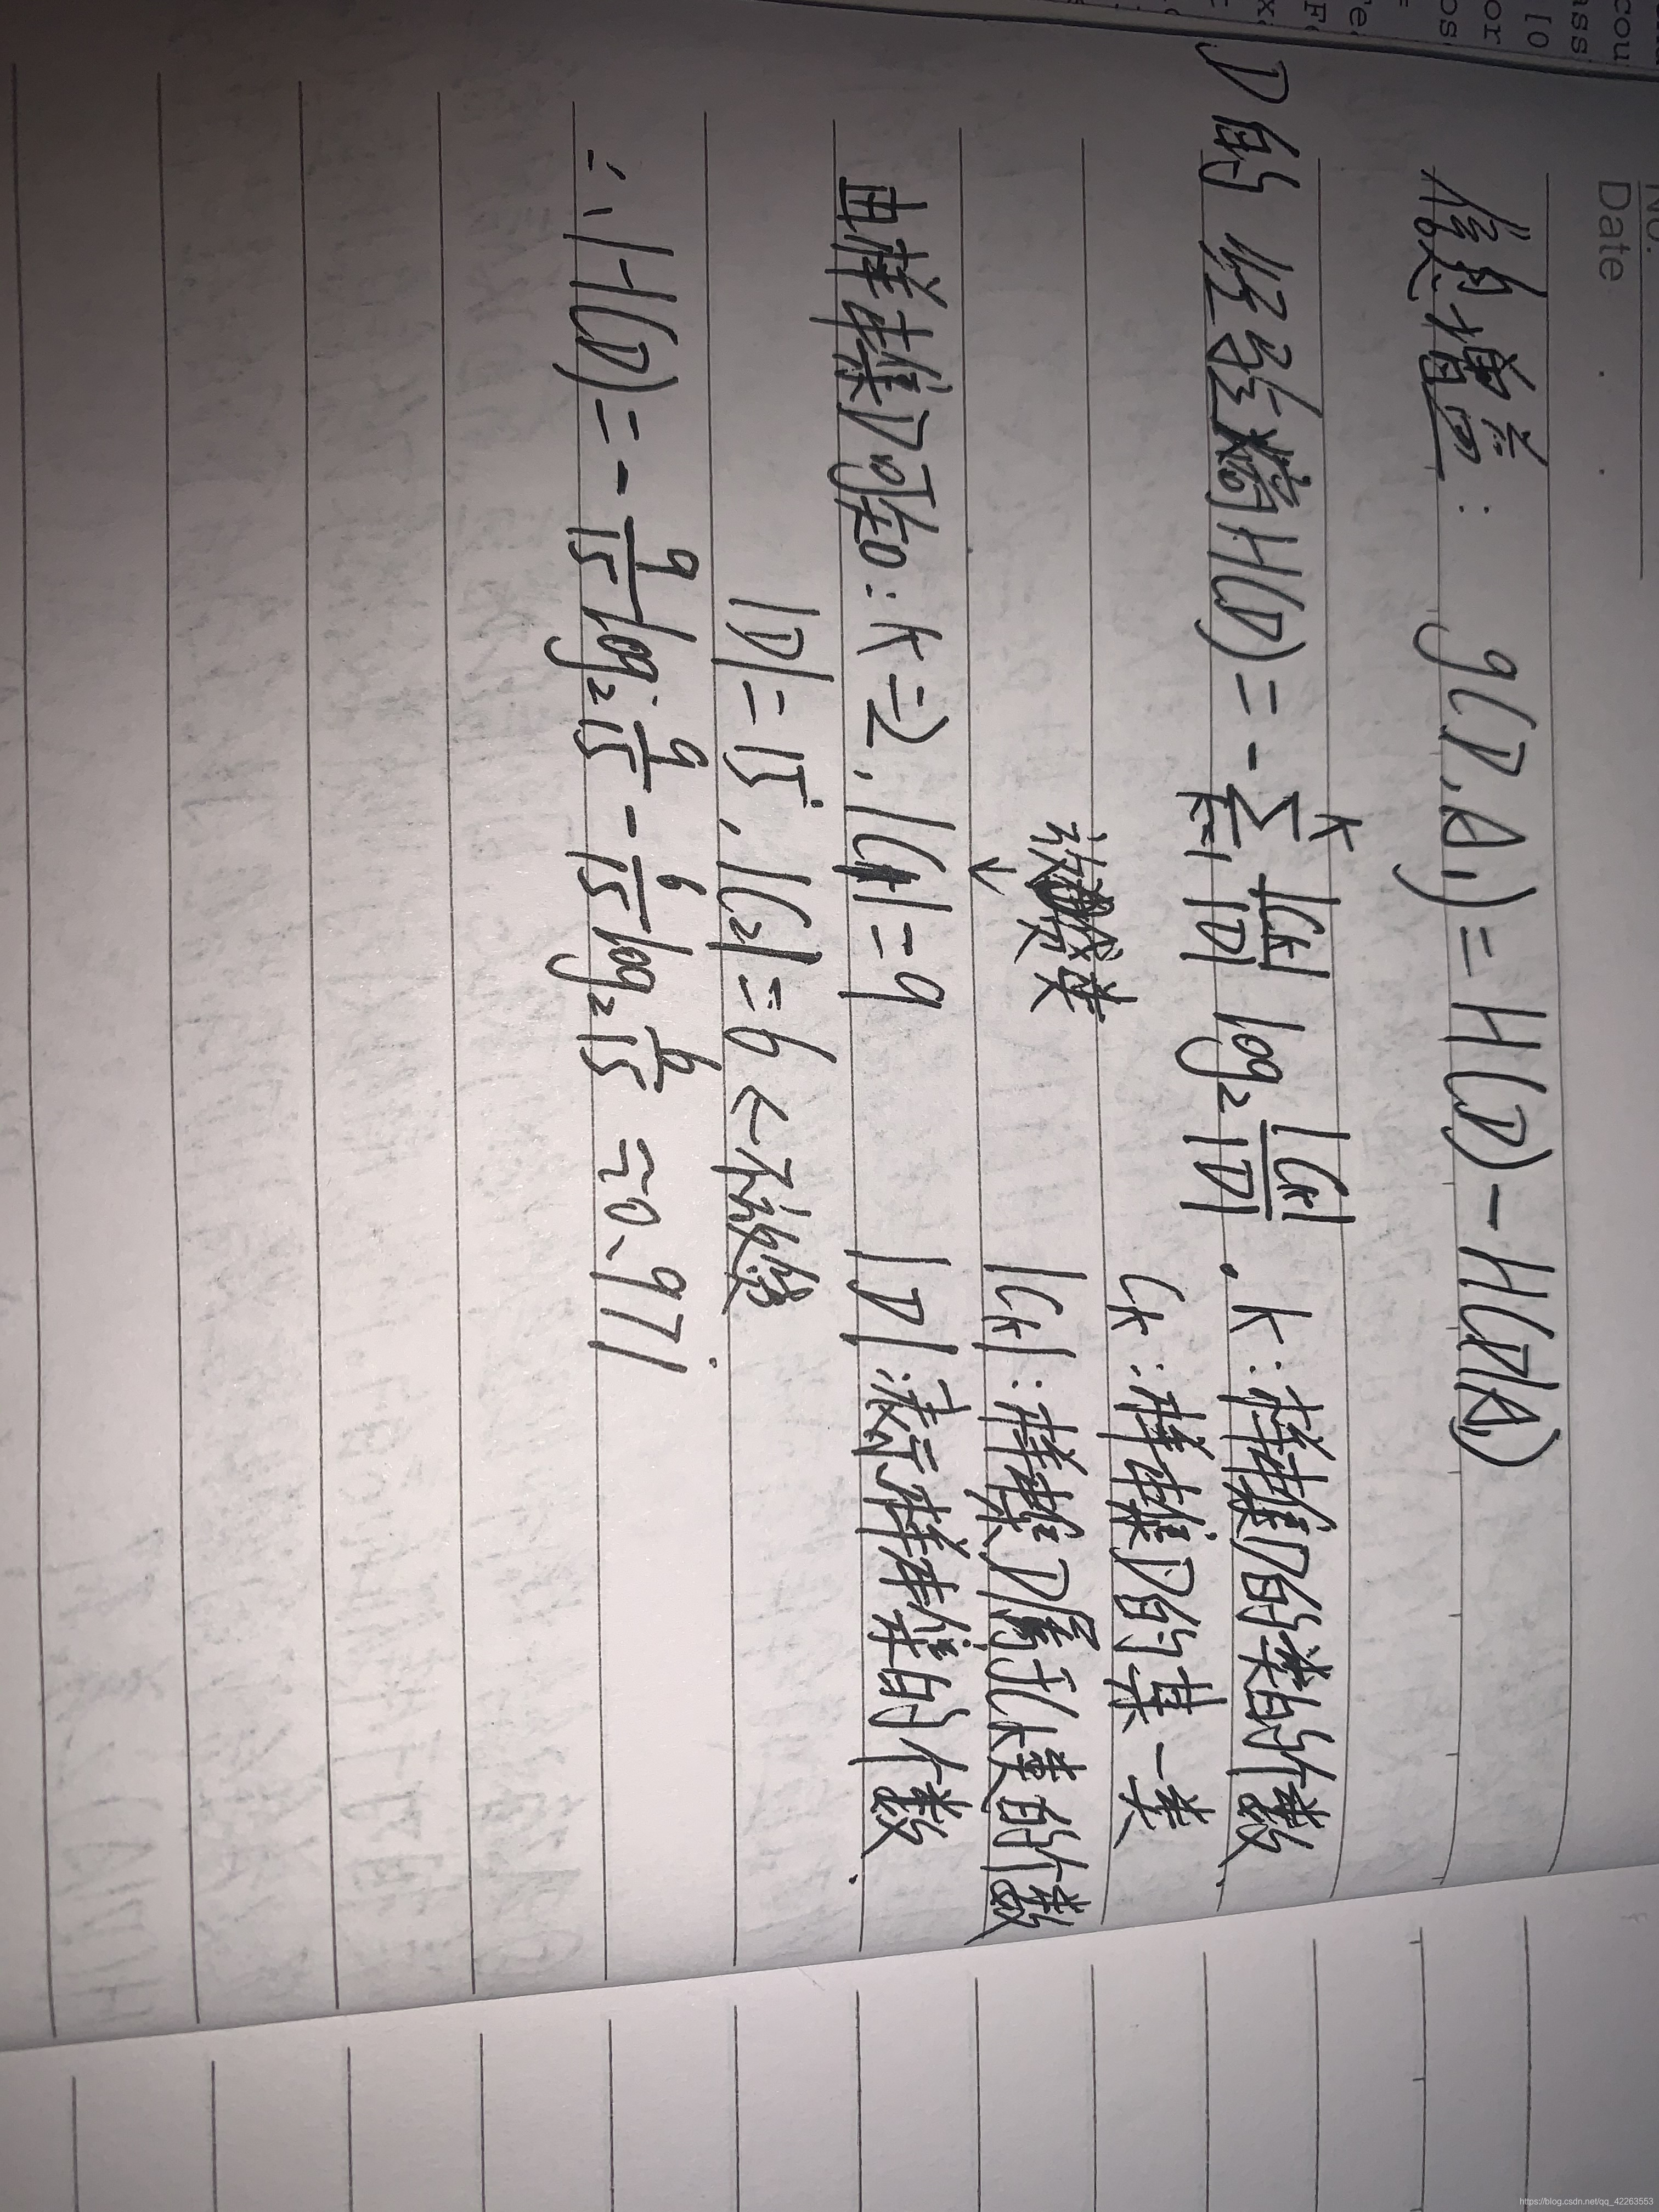 No.
Date
信息增益: g(D,A₁) = H(D) - H(D|A₁)
D的经验熵H(D) = - ∑ᵏₖ₌₁ |Cₖ|/|D| log₂ |Cₖ|/|D| . k:样本集D的类的个数.
Cₖ:样本集D的某一类
放贷类
↓
|Cₖ|:样本集D属于Cₖ类的个数
由样本集D可知:k=2, |C₁|=9
|D|:表示样本集的个数.
|D|=15, |C₂|=6 ← 不放贷
∴ H(D) = - 9/15 log₂ 9/15 - 6/15 log₂ 6/15 ≈ 0.971
https://blog.csdn.net/qq_42263553